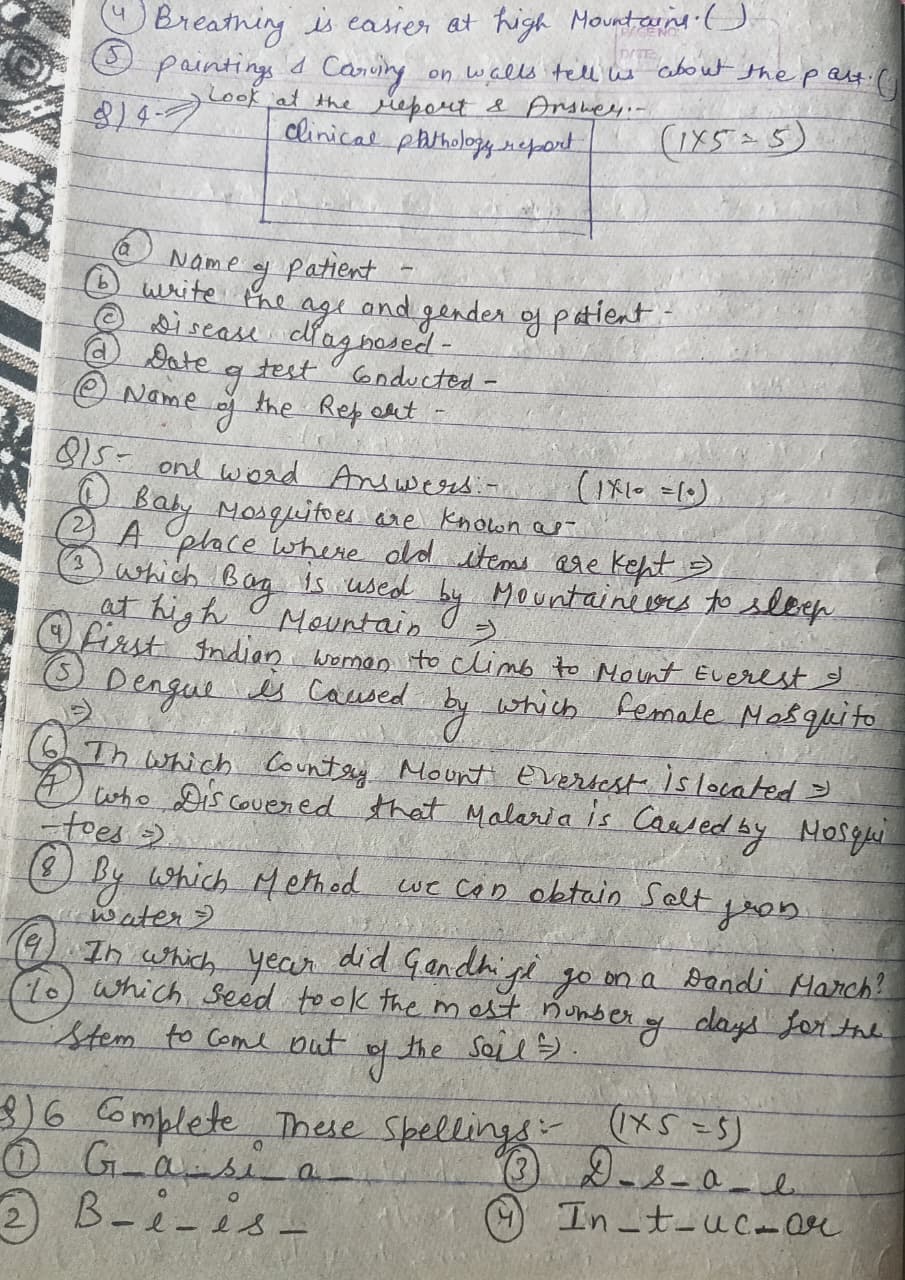 4 Breathing is easier at high Mountains. ( )
5 paintings & Carving on walls tell us about the past. ( )
Q)4 ⇒ Look at the report & Answer:-
Clinical pathology report (1X5=5)
a Name of patient -
b write the age and gender of patient -
c Disease diagnosed -
d Date of test Conducted -
e Name of the Report -
Q)5- one word Answers:- (1X10=10)
1 Baby Mosquitoes are Known as-
2 A place where old items are Kept ⇒
3 which Bag is used by Mountaineers to sleep
at high Mountain ⇒
4 first Indian woman to climb to Mount Everest ⇒
5 Dengue is Caused by which female Mosquito
⇒
6 In which Country Mount Everest is located ⇒
7 who Discovered that Malaria is Caused by Mosqui
-toes ⇒
8 By which Method we can obtain Salt from
water ⇒
9 In which year did Gandhiji go on a Dandi March?
10 which Seed took the most number of days for the
Stem to Come out of the Soil ⇒.
Q)6 Complete These Spellings:- (1X5=5)
1 G_a_si_a_ 3 D_s_a_e
2 B_i_is_ 4 In_t_uc_or